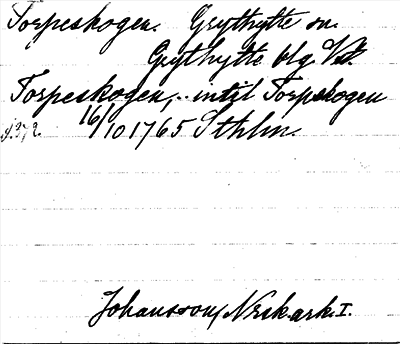 Torpeskogen. Grythytte sn.
Grythytte blg. Vstm.
Torpeskogen,.. intil Torpskogen
s. 372. 16/10 1765 Sthlm.
Johansson, NEskark. I.